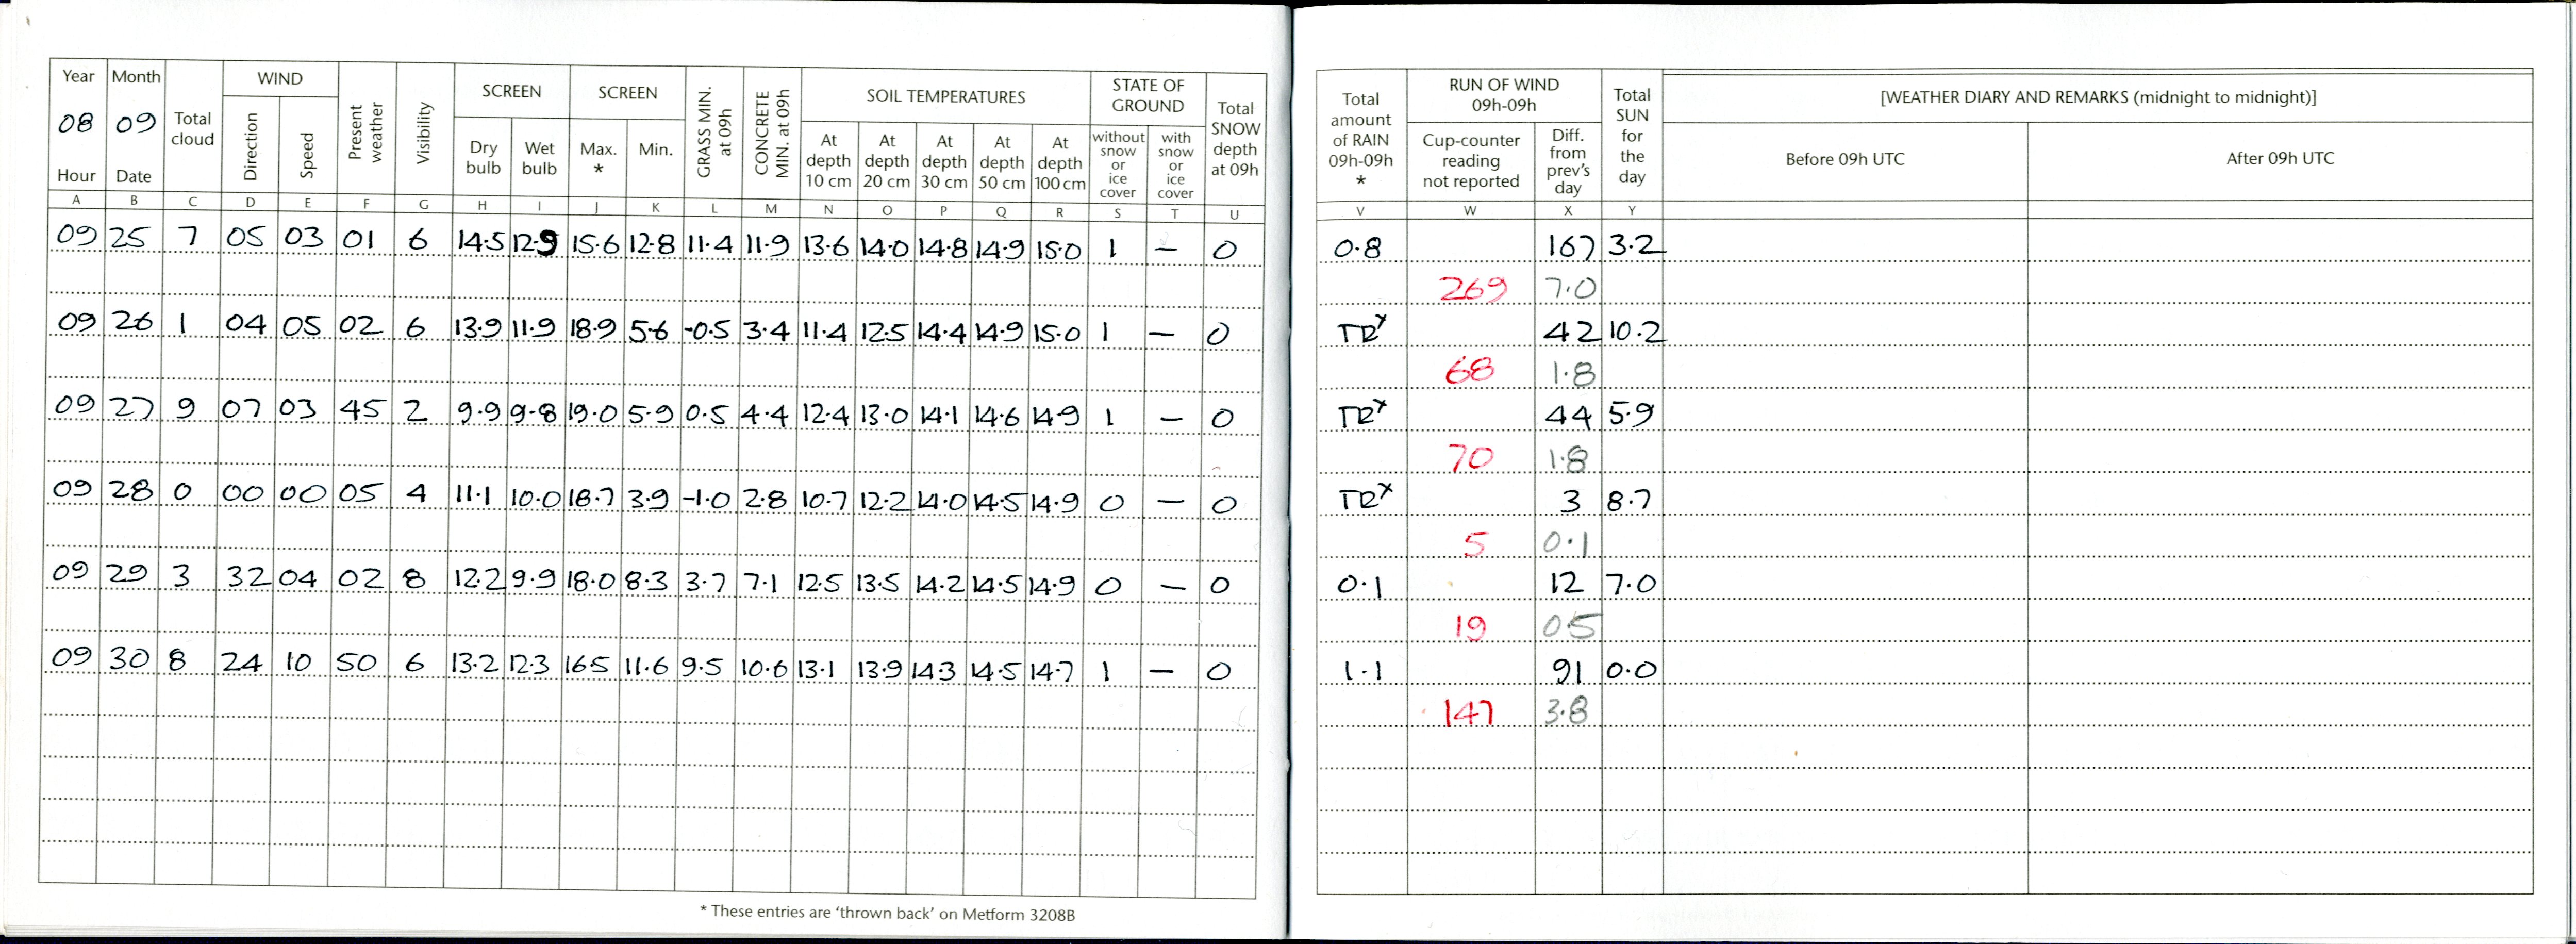 Year Month Total cloud WIND Present weather Visibility SCREEN SCREEN GRASS MIN. at 09h CONCRETE MIN. at 09h SOIL TEMPERATURES STATE OF GROUND Total SNOW depth at 09h
08 09 Direction Speed Dry bulb Wet bulb Max. * Min. At depth 10 cm At depth 20 cm At depth 30 cm At depth 50 cm At depth 100 cm without snow or ice cover with snow or ice cover
Hour Date
A B C D E F G H I J K L M N O P Q R S T U
09 25 7 05 03 01 6 14.5 12.9 15.6 12.8 11.4 11.9 13.6 14.0 14.8 14.9 15.0 1 — 0
09 26 1 04 05 02 6 13.9 11.9 18.9 5.6 -0.5 3.4 11.4 12.5 14.4 14.9 15.0 1 — 0
09 27 9 07 03 45 2 9.9 9.8 19.0 5.9 0.5 4.4 12.4 13.0 14.1 14.6 14.9 1 — 0
09 28 0 00 00 05 4 11.1 10.0 18.7 3.9 -1.0 2.8 10.7 12.2 14.0 14.5 14.9 0 — 0
09 29 3 32 04 02 8 12.2 9.9 18.0 8.3 3.7 7.1 12.5 13.5 14.2 14.5 14.9 0 — 0
09 30 8 24 10 50 6 13.2 12.3 165 11.6 9.5 10.6 13.1 13.9 14.3 14.5 14.7 1 — 0
* These entries are ‘thrown back’ on Metform 3208B
Total amount of RAIN 09h-09h * RUN OF WIND 09h-09h Total SUN for the day [WEATHER DIARY AND REMARKS (midnight to midnight)]
Cup-counter reading not reported Diff. from prev's day Before 09h UTC After 09h UTC
V W X Y
0.8 167 3.2
269 7.0
TRx 42 10.2
68 1.8
TRx 44 5.9
70 1.8
TRx 3 8.7
5 0.1
0.1 12 7.0
19 0.5
1.1 91 0.0
147 3.8